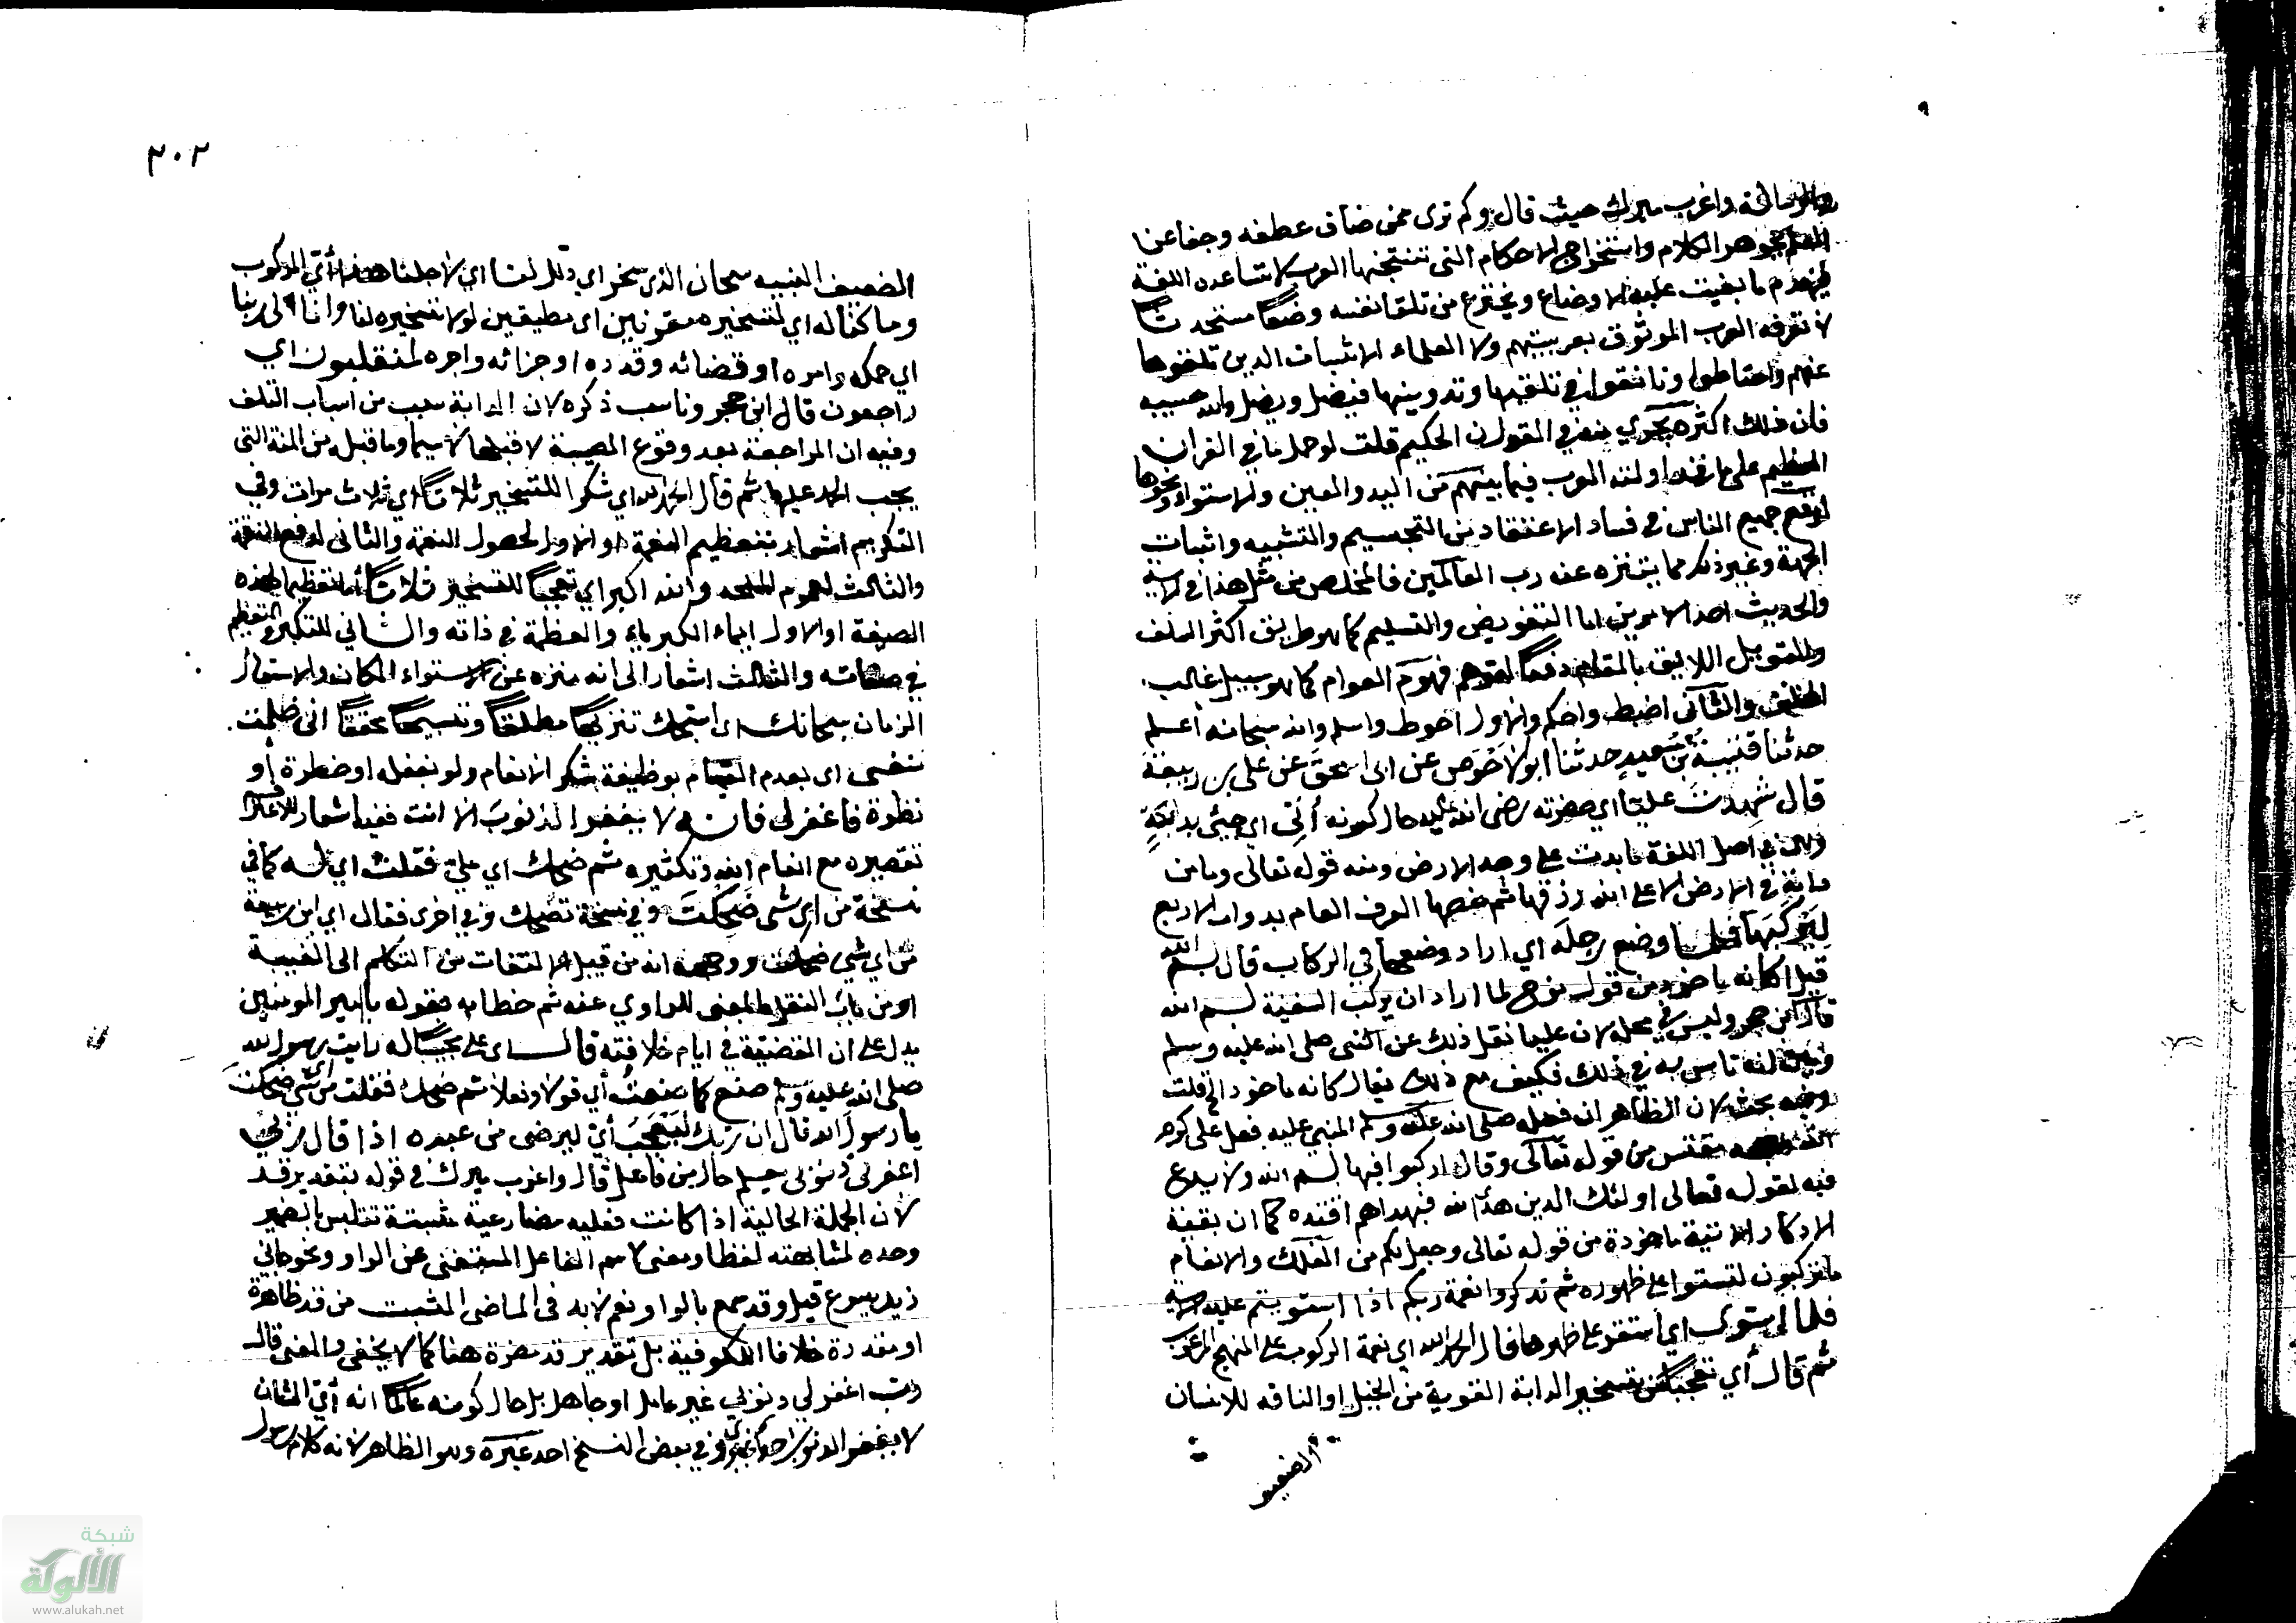 والرسالة واغرب ميرك حيث قال وكم ترى ممن ضاق عطفه وجفا عن
العلم بجوهر الكلام واستخراج الاحكام التي تنتجها العرب لا تساعده اللغة
فيهدم ما بنيت عليه الاوضاع ويخترع من تلقا نفسه وضعا مستحدثا
لا تعرفه العرب الموثوق بعربيتهم ولا العلماء الاثبات الذين تلقفوها
عنهم واحتاطوا وتانقوا في تلقيها وتدوينها فيضل ويضل والله حسيبه
فان ذلك اكثره يجري منه في القران الحكيم قلت لو حمل ما في القران
العظيم على ما تداولته العرب فيما بينهم من اليد والعين والاستواء ونحوها
لوقع جميع الناس في فساد الاعتقاد من التجسيم والتشبيه واثبات
الجهة وغير ذلك مما يتنزه عنه رب العالمين فالمخلص من مثل هذا في الاية
والحديث احد الامرين اما التفويض والتسليم كما هو طريق اكثر السلف
والتاويل اللايق بالمقام دفعا لتوهم فهوم العوام كما هو سبيل غالب
الخلف والثاني اضبط واحكم والاول احوط واسلم والله سبحانه اعلم
حدثنا قتيبة بن سعيد حدثنا ابو الاحوص عن ابي اسحق عن علي بن ربيعة
قال شهدت عليا اي حضرته رضي الله عليه حال كونه أتي اي جيئ بدابة
وهي في اصل اللغة ما يدب على وجه الارض ومنه قوله تعالى وما من
دابة في الارض الا على الله رزقها ثم خصها العرف العام بذوات الاربع
ليركبها فلما وضع رجله اي اراد وضعها في الركاب قال بسم الله
قيل كانه ماخوذ من قول نوح لما اراد ان يركب السفينة بسم الله
قال ابن حجر وليس في محله لان عليا نقل ذلك عن النبي صلى الله عليه وسلم
وبين انه تاسى به في ذلك فكيف مع ذلك يقال كانه ماخوذ الخ قلت
وفيه بحث لان الظاهر ان فعله صلى الله عليه وسلم المبني عليه فعل علي كرم
الله وجهه مقتبس من قوله تعالى وقال اركبوا فيها بسم الله ولا بدع
فيه لقوله تعالى اولئك الذين هدى الله فبهداهم اقتده كما ان بقية
الاذكار الاتية ماخوذة من قوله تعالى وجعل لكم من الفلك والانعام
ما تركبون لتستووا على ظهوره ثم تذكروا نعمة ربكم اذا استويتم عليه الاية
فلما استوى اي استقر على ظهرها قال الحمد لله اي نعمة الركوب على المنهج
ثم قال أي تعجبا من تسخير الدابة القوية من الخيل او الناقه للانسان
الضعيف
٢٠٢
الضعيف البنيه سبحان الذي سخر اي ذلل لنا اي لاجلنا هذا أي المركوب
وما كنا له اي لتسخيره مقرنين اي مطيقين لولا تسخيره لنا وانا الى ربنا
اي حكمه وامره او قضائه وقدره او جزائه واجره لمنقلبون اي
راجعون قال ابن حجر وناسب ذكره لان الدابة سبب من اسباب التلف
وفيه ان المراجعة بعد وقوع المصيبة لا قبلها لا سيما وما قبل من المنة التي
يجب الحمد عليها ثم قال الحمد لله اي شكرا للتسخير ثلاثا اي ثلاث مرات وفي
التكرير اشعار بتعظيم النعمة او الاول لحصول النعمة والثاني لدفع النقمة
والثالث لعموم المنحه والله اكبر اي تعجبا للتسخير ثلاثا اما تعظيما لهذه
الصيغة او الاول ايماء الكبرياء والعظمة في ذاته والثاني للتكبر والتعظيم
في صفاته والثالث اشعار الى انه منزه عن الاستواء المكاني والاستعلاء
الزماني سبحانك اي اسبحك تنزيها مطلقا وتسبيحا محققا اني ظلمت
نفسي اي بعدم القيام بوظيفة شكر الانعام ولو بغفلة او خطرة او
نظرة فاغفرلي فانه لا يغفر الذنوب الا انت ففيه اشعار للاعتراف
تقصيره مع انعام الله وتكثيره ثم ضحك اي علي فقلت اي له كما في
نسخة من اي شى ضحكت وفي نسخة تضحك وفي اخرى فقال اي ابن ربيعة
من اي شي ضحكت ووجهه انه من قبيل الالتفات من التكلم الى الغيبة
او من باب النقل بالمعنى للراوي عنه ثم خطابه بقوله يا امير المومنين
يدل على ان القضية في ايام خلافته قال اي علي مجيبا له رايت رسول الله
صلى الله عليه وسلم صنع كما صنعت أي قولا وفعلا ثم ضحك فقلت من اي شي ضحكت
يا رسول الله قال ان ربك ليعجب أي ليرضى من عبده اذا قال رب
اغفرلي ذنوبي يعلم حال من فاعل قال واغرب ميرك في قوله بتقدير قد
لان الجملة الحالية اذا كانت فعليه مضارعية مثبتة تتلبس بالضمير
وحده لمشابهته لفظا ومعنى لاسم الفاعل المستغنى عن الواو ونحو جاني
زيد يسرع قيل وقد سمع بالواو نعم لا بد في الماضي المثبت من قد ظاهرة
او مقدرة خلافا للكوفية بل تقدير قد مضرة هنا كما لا يخفى والمعنى قال
رب اغفر لي ذنوبي غير غافل او جاهل بل حال كونه عالما انه أي الشان
لا يغفر الذنوب احد غيري وفي بعض النسخ احد غيره وهو الظاهر لانه كلام رسول
شبكة
الألوكة
www.alukah.net